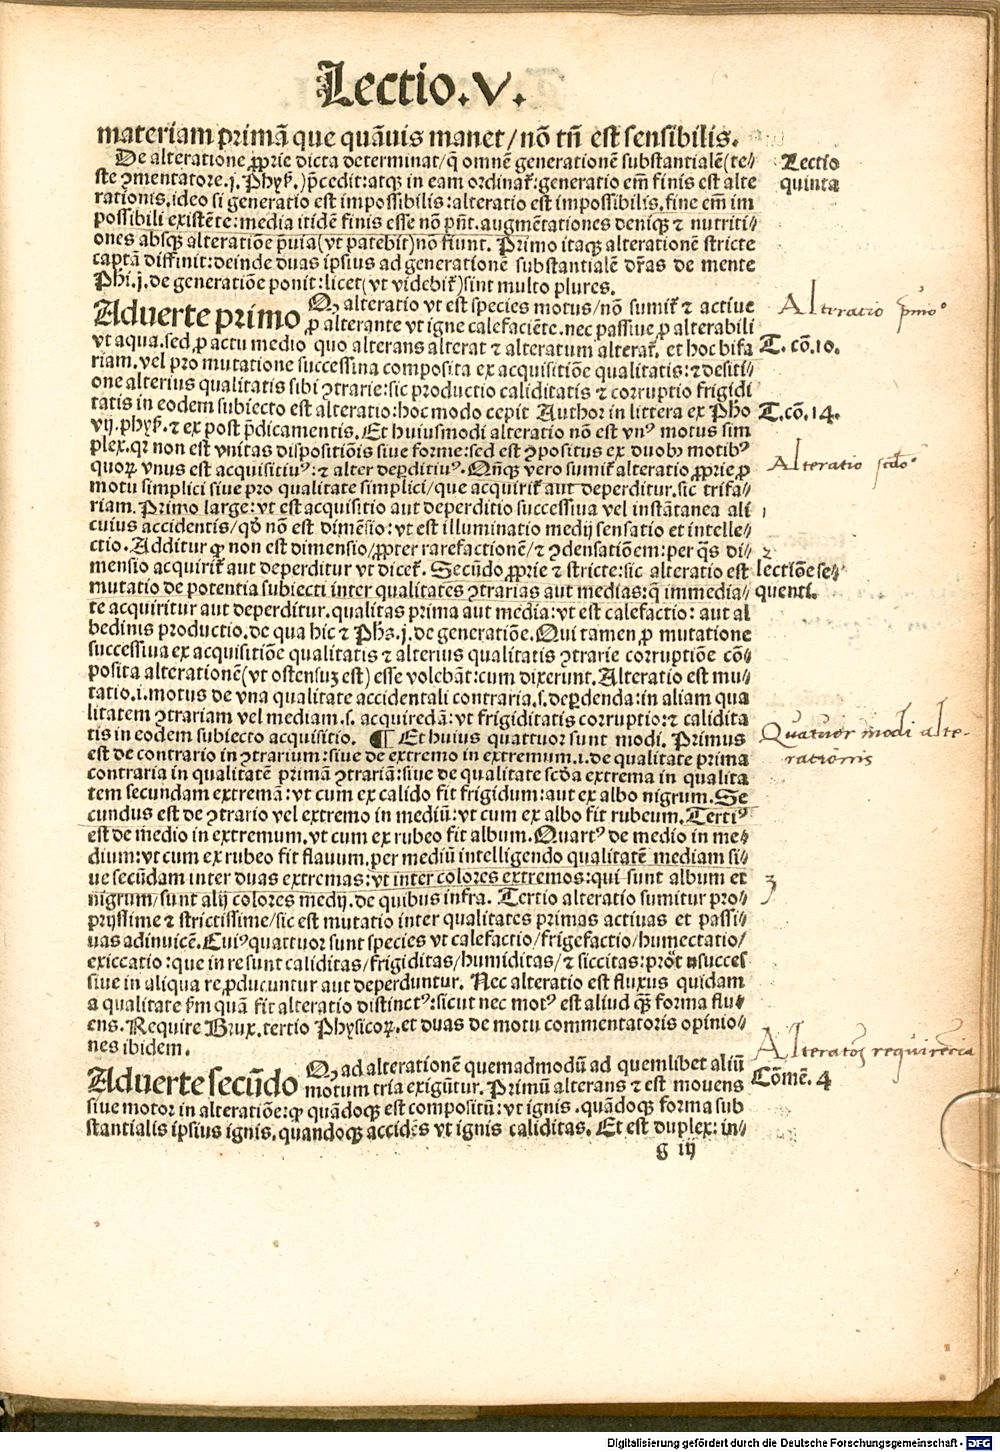 Lectio.V.
materiam primā que quāuis manet/nō tñ est sensibilis.
De alteratione ꝓprie dicta determinat/q̄ omnē generationē substantialē(te⸗
ste ꝯmentatore.j.Phyẜ.)p̄cedit:atqꝫ in eam ordinat᷑:generatio em̄ finis est alte
rationis.ideo si generatio est impossibilis:alteratio est impossibilis.fine em̄ im
possibili existēte:media itidē finis esse nō pn̄t.augmētationes deniqꝫ ⁊ nutriti⸗
ones absqꝫ alteratiōe p̄uia(vt patebit)nō fiunt. Primo itaqꝫ alterationē stricte
captā diffinit:deinde duas ipsius ad generationē substantialē dr̄as de mente
Phi.j.de generatiōe ponit:licet(vt videbit᷑)sint multo plures.
Aduerte primo Qꝫ alteratio vt est species motus/nō sumit᷑ ⁊ actiue
ꝓ alterante vt igne calefaciēte.nec passiue ꝓ alterabili
vt aqua.sed ꝓ actu medio quo alterans alterat ⁊ alteratum alterat᷑. et hoc bifa
riam.vel pro mutatione successiua composita ex acquisitiōe qualitatis:⁊ desiti⸗
one alterius qualitatis sibi ꝯtrarie:sic productio caliditatis ⁊ corruptio frigidi
tatis in eodem subiecto est alteratio:hoc modo cepit Author in littera ex Pho
vij.phyẜ.⁊ ex post p̄dicamentis. Et huiusmodi alteratio nō est vnꝰ motus sim
plex.qꝛ non est vnitas dispositiōis siue forme:sed est ꝯpositus ex duobꝰ motibꝰ
quoꝝ vnus est acquisitiuꝰ:⁊ alter deꝑditiuꝰ. Qn̄qꝫ vero sumit᷑ alteratio ꝓprie.ꝓ
motu simplici siue pro qualitate simplici/que acquirit᷑ aut deperditur.sic trifa⸗
riam. Primo large:vt est acquisitio aut deperditio successiua vel instātanea ali
cuius accidentis/qđ nō est dimēsio:vt est illuminatio medij sensatio et intelle⸗
ctio. Additur ꝙ non est dimensio/ꝓpter rarefactionē/⁊ ꝯdensatiōem:per q̄s di⸗
mensio acquirit᷑ aut deperditur vt dicet᷑. Secūdo ꝓprie ⁊ stricte:sic alteratio est
mutatio de potentia subiecti inter qualitates ꝯtrarias aut medias:q̄ immedia⸗
te acquiritur aut deperditur.qualitas prima aut media:vt est calefactio: aut al
bedinis productio.de qua hic ⁊ Phs̄.j.de generatiōe. Qui tamen ꝓ mutatione
successiua ex acquisitiōe qualitatis ⁊ alterius qualitatis ꝯtrarie corruptiōe cō⸗
posita alterationē(vt ostensuꝫ est) esse volebāt:cum dixerunt. Alteratio est mu⸗
tatio.i.motus de vna qualitate accidentali contraria.s.deꝑdenda:in aliam qua
litatem ꝯtrariam vel mediam.s. acquiredā:vt frigiditatis corruptio:⁊ calidita
tis in eodem subiecto acquisitio. ¶ Et huius quattuor sunt modi. Primus
est de contrario in ꝯtrarium:siue de extremo in extremum.i.de qualitate prima
contraria in qualitatē primā ꝯtrariā:siue de qualitate scđa extrema in qualita
tem secundam extremā:vt cum ex calido fit frigidum:aut ex albo nigrum. Se
cundus est de ꝯtrario vel extremo in mediū:vt cum ex albo fit rubeum. Tertiꝰ
est de medio in extremum.vt cum ex rubeo fit album. Quartꝰ de medio in me⸗
dium:vt cum ex rubeo fit flauum.per mediū intelligendo qualitatē mediam si⸗
ue secūdam inter duas extremas:vt inter colores extremos:qui sunt album et
nigrum/sunt alij colores medij.de quibus infra. Tertio alteratio sumitur pro⸗
prijssime ⁊ strictissime/sic est mutatio inter qualitates primas actiuas et passi⸗
uas adinuicē. Cuiꝰ quattuor sunt species vt calefactio/frigefactio/humectatio/
exiccatio:que in re sunt caliditas/frigiditas/humiditas/⁊ siccitas:prōt succes
siue in aliqua re ꝓducuntur aut deperduntur. Nec alteratio est fluxus quidam
a qualitate ẜm quā fit alteratio distinctꝰ:sicut nec motꝰ est aliud qꝫ̄ forma flu⸗
ens. Require Brux.tertio Physicoꝝ.et duas de motu commentatoris opinio⸗
nes ibidem.
Aduerte secūdo Qꝫ ad alterationē quemadmodū ad quemlibet aliū
motum tria exigūtur. Primū alterans ⁊ est mouens
siue motor in alteratiōe:ꝙ quādoqꝫ est compositū:vt ignis.quādoqꝫ forma sub
stantialis ipsius ignis.quandoqꝫ accidēs vt ignis caliditas. Et est duplex: in⸗
g iij
Lectio
quinta
Alteratio pͥmoͦ
T.cō.10.
T.cō.14.
Alteratio scd̄oͦ
1
2
lectiōe se⸗
quenti.
Quatuor modi alte-
rationis
3
Alteratōꝫ requirētia
Cōmē.4
Digitalisierung gefördert durch die Deutsche Forschungsgemeinschaft - DFG